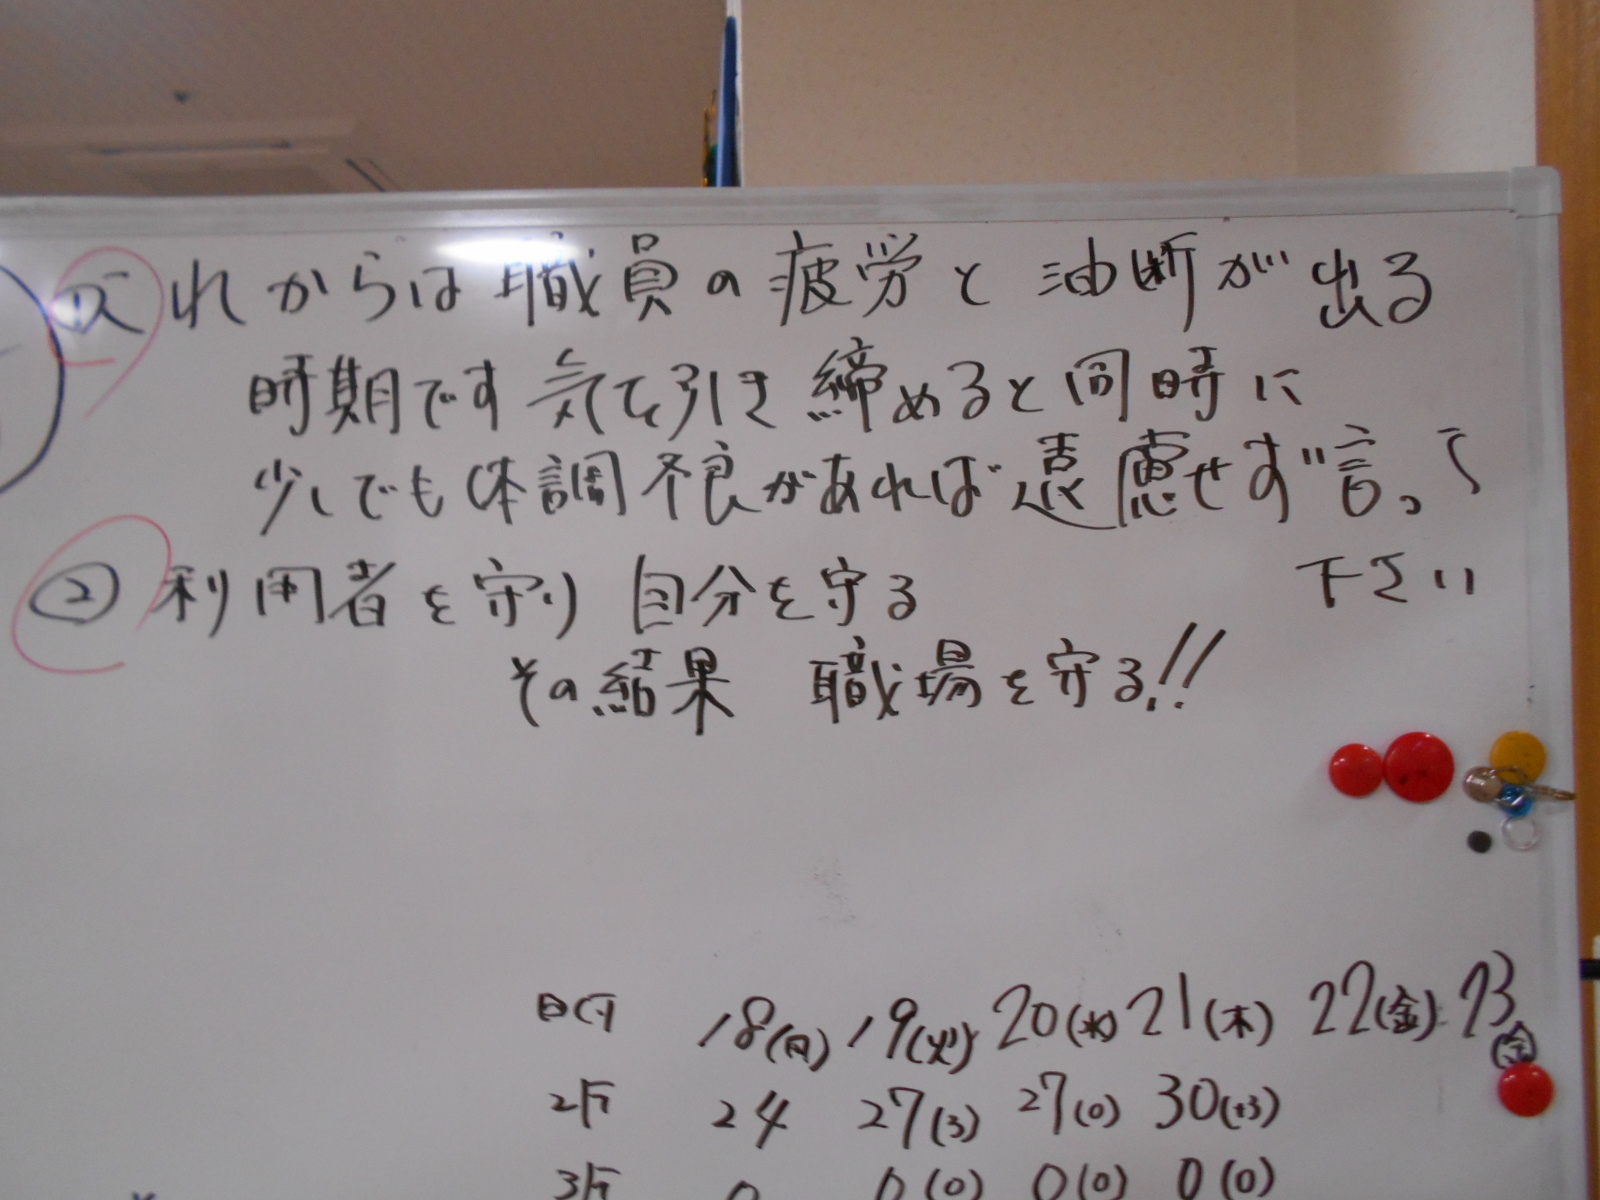 ①これからは職員の疲労と油断が出る
時期です気を引き締めると同時に
少しでも体調不良があれば遠慮せず言って
下さい
②利用者を守り 自分を守る
その結果 職場を守る!!
日付 18(月) 19(火) 20(水) 21(木) 22(金) 23
2F 24 27(3) 27(0) 30(+3)
3F 0 0(0) 0(0) 0(0)